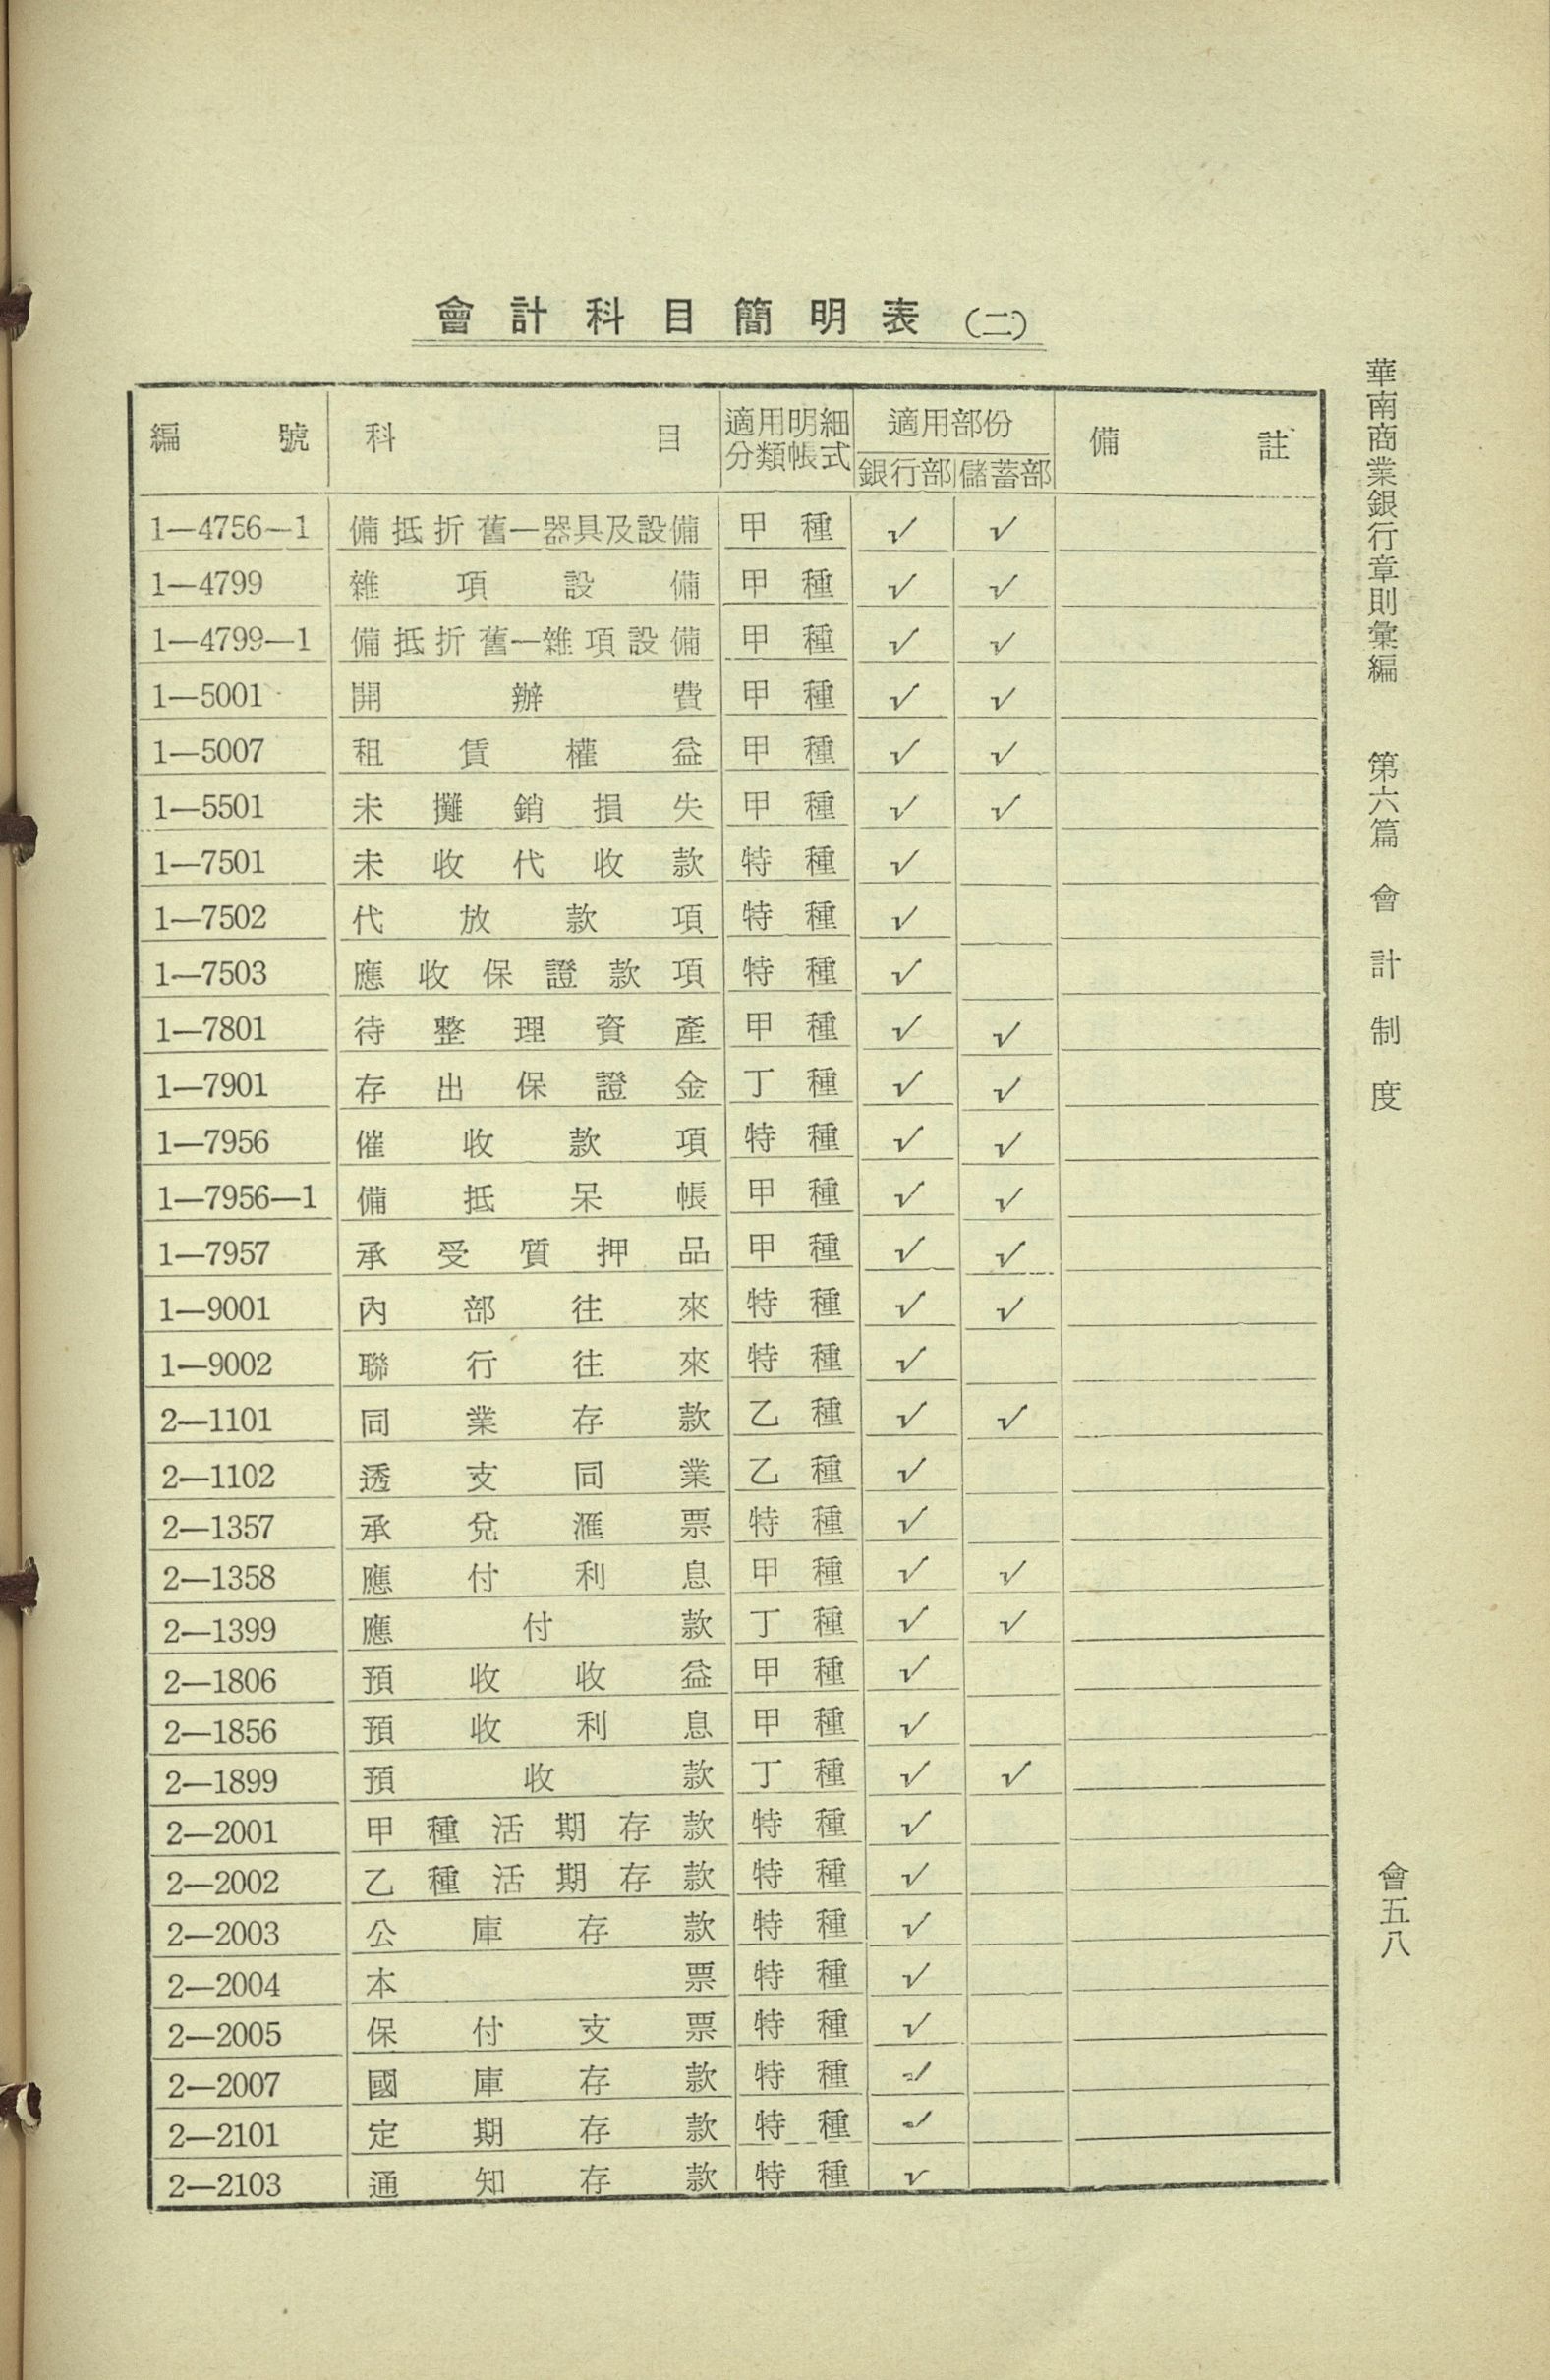 會計科目簡明表(二)
編號 科目 適用明細分類帳式 適用部份 備註
銀行部 儲蓄部
1—4756—1 備抵折舊—器具及設備 甲種 √ √
1—4799 雜項設備 甲種 √ √
1—4799—1 備抵折舊—雜項設備 甲種 √ √
1—5001 開辦費 甲種 √ √
1—5007 租賃權益 甲種 √ √
1—5501 未攤銷損失 甲種 √ √
1—7501 未收代收款 特種 √
1—7502 代放款項 特種 √
1—7503 應收保證款項 特種 √
1—7801 待整理資產 甲種 √ √
1—7901 存出保證金 丁種 √ √
1—7956 催收款項 特種 √ √
1—7956—1 備抵呆帳 甲種 √ √
1—7957 承受質押品 甲種 √ √
1—9001 內部往來 特種 √ √
1—9002 聯行往來 特種 √
2—1101 同業存款 乙種 √ √
2—1102 透支同業 乙種 √
2—1357 承兌滙票 特種 √
2—1358 應付利息 甲種 √ √
2—1399 應付款 丁種 √ √
2—1806 預收收益 甲種 √
2—1856 預收利息 甲種 √
2—1899 預收款 丁種 √ √
2—2001 甲種活期存款 特種 √
2—2002 乙種活期存款 特種 √
2—2003 公庫存款 特種 √
2—2004 本票 特種 √
2—2005 保付支票 特種 √
2—2007 國庫存款 特種 √
2—2101 定期存款 特種 √
2—2103 通知存款 特種 √
華南商業銀行章則彙編 第六篇 會計制度
會五八